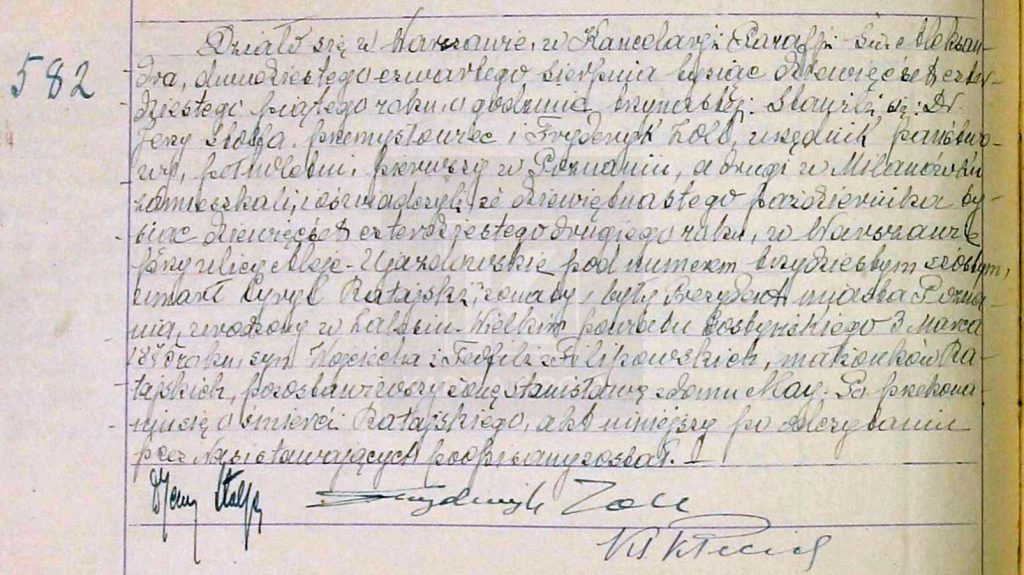 582
Działo się w Warszawie, w Kancelarji Parafji Św. Aleksan-
dra, dwudziestego czwartego sierpnia tysiąc dziewięćset czter-
dziestego piątego roku o godzinie trzynastej. Stawili się: Dr
Jerzy, przemysłowiec i Fryderyk Zoll, urzędnik państwo-
wy, pełnoletni, pierwszy w Poznaniu, a drugi w Milanówku
zamieszkali, i oświadczyli, że dziewiętnastego października ty-
siąc dziewięćset czterdziestego drugiego roku, w Warszawie
przy ulicy Aleje-Ujazdowskie pod numerem trzydziestym szóstym,
umarł Cyryl Ratajski, żonaty, były Prezydent miasta Pozna-
nia, urodzony w Zalesiu-Wielkim powiatu Gostyńskiego 3 Marca
roku, syn Wojciecha i Teofili z Filipowskich, małżonków Ra-
tajskich, pozostawiwszy żonę Stanisławę z domu May. Po przekona-
niu się o śmierci Ratajskiego, akt niniejszy po odczytaniu
przez Nas i stawających podpisany został.
Fryderyk Zoll